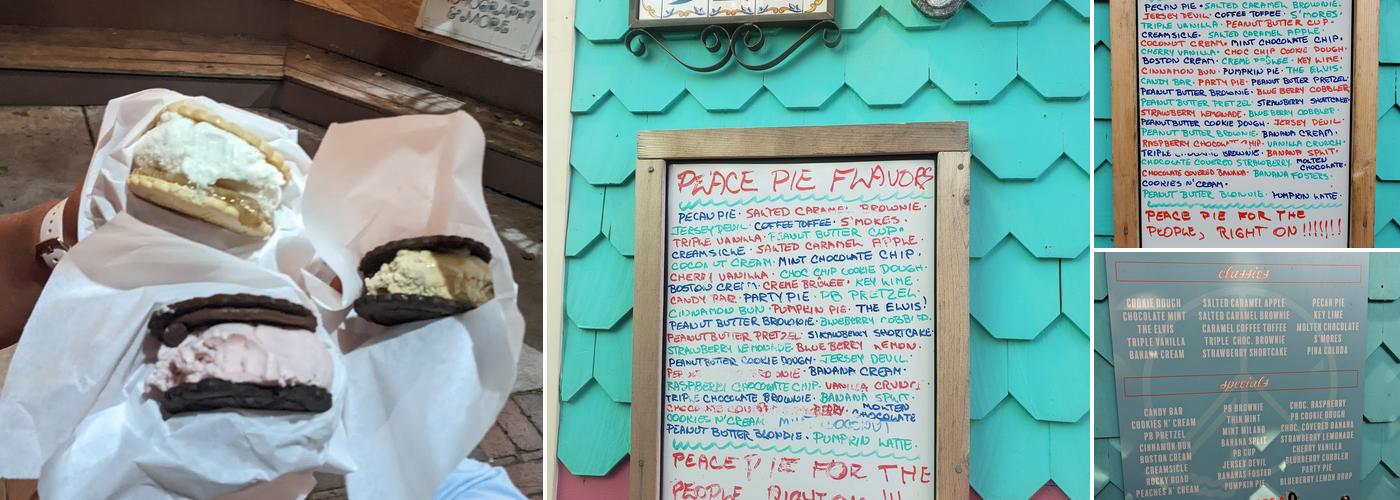 & MORE
PEACE PIE FLAVORS
PECAN PIE · SALTED CARAMEL BROWNIE ·
JERSEY DEVIL · COFFEE TOFFEE · S'MORES ·
TRIPLE VANILLA · PEANUT BUTTER CUP ·
CREAMSICKLE · SALTED CARAMEL APPLE ·
COCONUT CREAM · MINT CHOCOLATE CHIP ·
CHERRY VANILLA · CHOC CHIP COOKIE DOUGH ·
BOSTON CREAM · CREME BRÛLEE · KEY LIME ·
CANDY BAR · PARTY PIE · PB PRETZEL ·
CINNAMON BUN · PUMPKIN PIE · THE ELVIS!
PEANUT BUTTER BROWNIE · BLUEBERRY
PEANUT BUTTER PRETZEL · STRAWBERRY SHORTCAKE ·
STRAWBERRY LEMONADE · BLUEBERRY LEMON ·
PEANUT BUTTER COOKIE DOUGH · JERSEY DEVIL ·
BANANA CREAM ·
RASPBERRY CHOCOLATE CHIP · VANILLA CRUNCH ·
TRIPLE CHOCOLATE BROWNIE · BANANA SPLIT ·
CHOCOLATE BERRY · MOLTEN CHOCOLATE
COOKIES N' CREAM
PEANUT BUTTER BLONDIE · PUMPKIN LATTE ·
PEACE PIE FOR THE
PEOPLE, RIGHT ON !!!
PECAN PIE · SALTED CARAMEL BROWNIE ·
JERSEY DEVIL · COFFEE TOFFEE · S'MORES ·
TRIPLE VANILLA · PEANUT BUTTER CUP ·
CREAMSICLE · SALTED CARAMEL APPLE ·
COCONUT CREAM · MINT CHOCOLATE CHIP ·
CHERRY VANILLA · CHOC CHIP COOKIE DOUGH ·
BOSTON CREAM · CREME BRÛLEE · KEY LIME ·
CINNAMON BUN · PUMPKIN PIE · THE ELVIS ·
CANDY BAR · PARTY PIE · PEANUT BUTTER PRETZEL ·
PEANUT BUTTER BROWNIE · BLUEBERRY COBBLER
PEANUT BUTTER PRETZEL · STRAWBERRY SHORTCAKE
STRAWBERRY LEMONADE · BLUEBERRY COBBLER ·
PEANUT BUTTER COOKIE DOUGH · JERSEY DEVIL ·
PEANUT BUTTER BROWNIE · BANANA CREAM ·
RASPBERRY CHOCOLATE CHIP · VANILLA CRUNCH ·
TRIPLE BROWNIE · BANANA SPLIT ·
CHOCOLATE COVERED STRAWBERRY · MOLTEN CHOCOLATE ·
CHOCOLATE COVERED BANANA · BANANA FOSTERS ·
COOKIES N' CREAM ·
PEANUT BUTTER BLONDIE · PUMPKIN LATTE ·
PEACE PIE FOR THE
PEOPLE, RIGHT ON !!!!!!!
classics
COOKIE DOUGH SALTED CARAMEL APPLE PECAN PIE
CHOCOLATE MINT SALTED CARAMEL BROWNIE KEY LIME
THE ELVIS CARAMEL COFFEE TOFFEE MOLTEN CHOCOLATE
TRIPLE VANILLA TRIPLE CHOC. BROWNIE S'MORES
BANANA CREAM STRAWBERRY SHORTCAKE PINA COLODA
specials
CANDY BAR PB BROWNIE CHOC. RASPBERRY
COOKIES N' CREAM THIN MINT PB COOKIE DOUGH
PB PRETZEL MINT MILANO CHOC. COVERED BANANA
CINNAMON BUN BANANA SPLIT STRAWBERRY LEMONADE
BOSTON CREAM PB CUP CHERRY VANILLA
CREAMSICLE JERSEY DEVIL BLUEBERRY COBBLER
ROCKY ROAD BANANAS FOSTER PARTY PIE
PEACHES N' CREAM PUMPKIN PIE BLUEBERRY LEMON DROP